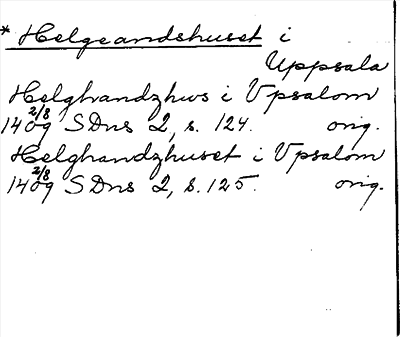 * Helgeandshuset i
Uppsala
Helghandzhws i Vpsalom
14 2/8 09 SDns 2, s. 124. orig.
Helghandzhuset i Vpsalom
14 2/8 09 SDns 2, s. 125. orig.